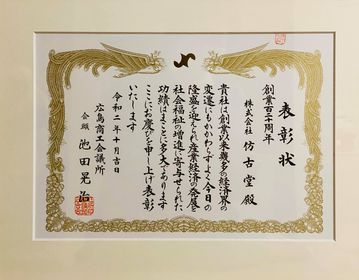 表彰状
創業百二十周年
株式会社 仿古堂殿
貴社は創業以来幾多の経済界の
変遷にもかかわらずよく今日の
隆盛を迎えられ産業経済の発展と
社会福祉の増進に寄与せられた
功績はまことに多大であります
ここにお慶びを申し上げ表彰
いたします
令和二年十月吉日
広島商工会議所
会頭 池田晃治